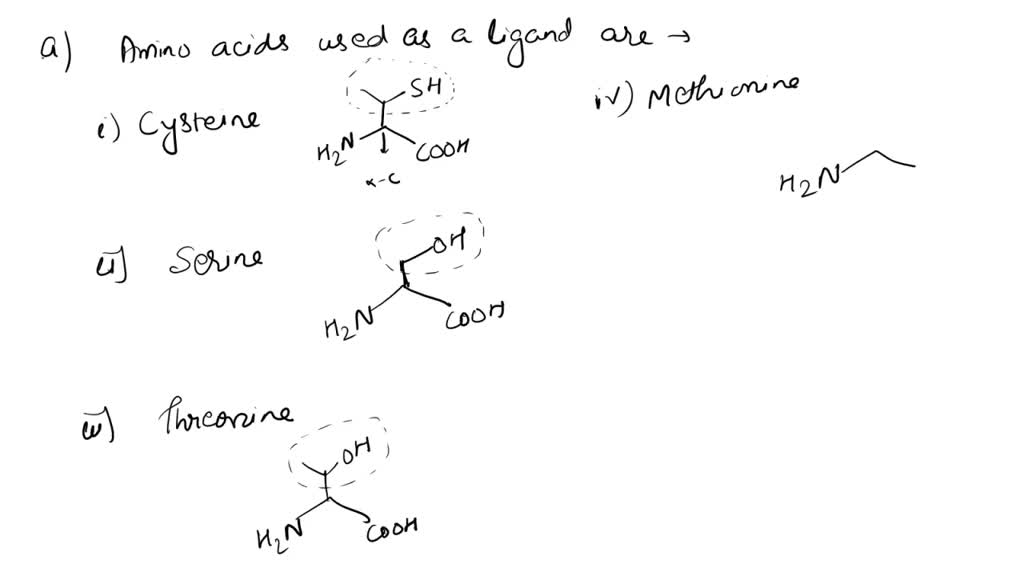 a) Amino acids used as a ligand are →
i) Cysteine
SH
H2N
COOH
α-C
ii] Serine
OH
H2N
COOH
iii) Threonine
OH
H2N
COOH
iv) Methionine
H2N